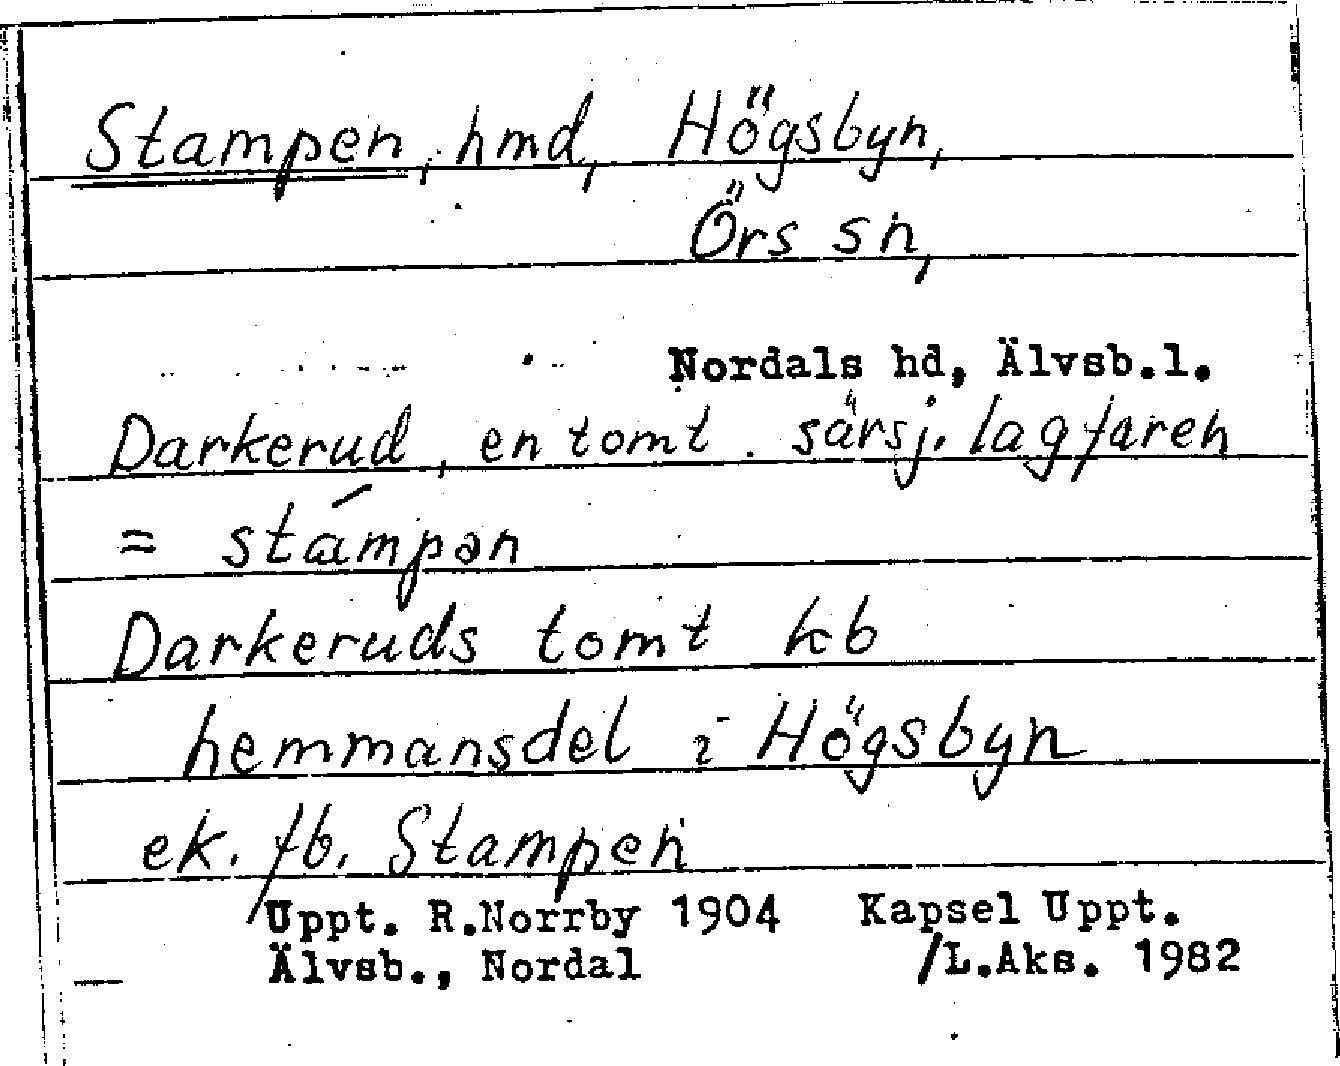 Stampen, hmd, Högsbyn,
Örs sn,
Nordals hd, Älvsb.l.
Darkerud, en tomt. särsj. lagfaren
= stámpən
Darkeruds tomt kb
hemmansdel i Högsbyn
ek. fb. Stampen
Uppt. R.Norrby 1904 Kapsel Uppt.
Älvsb., Nordal /L.Aks. 1982